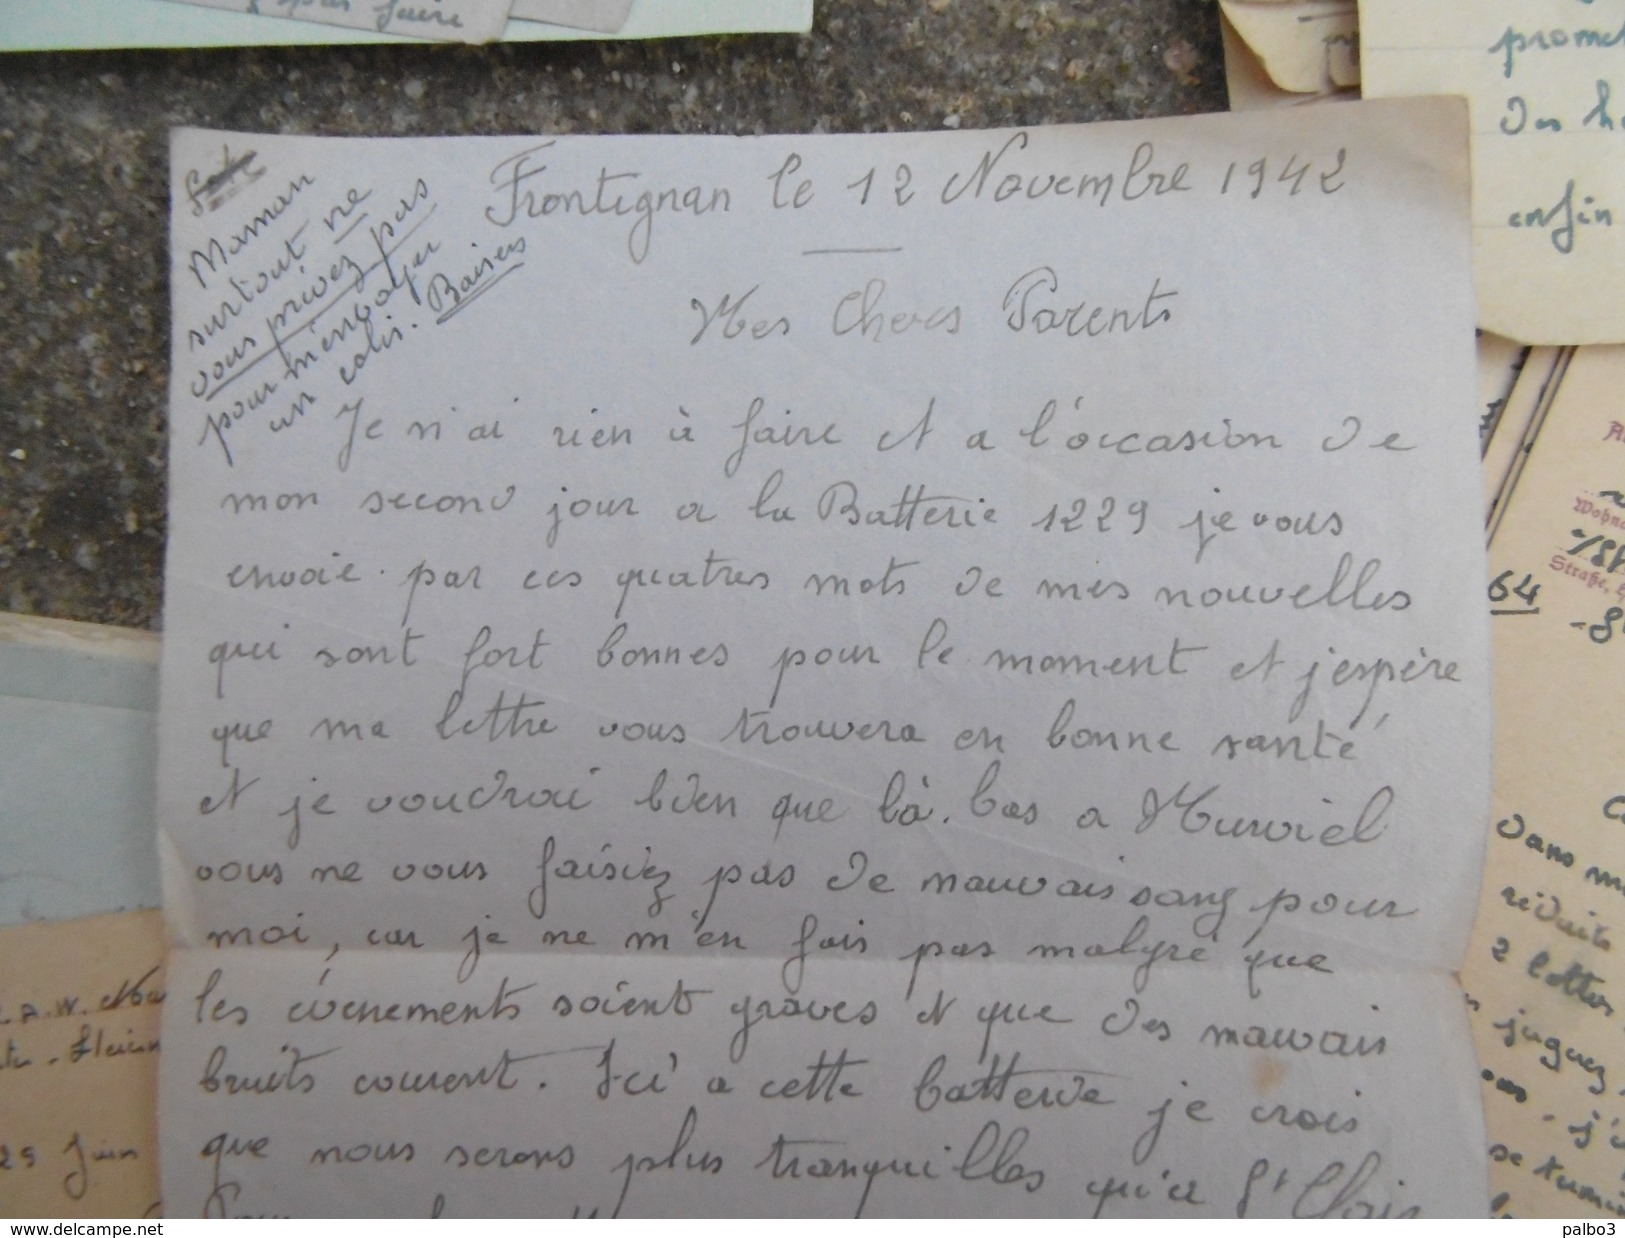 pas faire
promet
Des h
enfin
Frontignan le 12 Novembre 1942
Maman
surtout ne
vous privez pas
pour m'envoyer
un colis. Baisers
Mes Chers Parents
Je n'ai rien à faire et a l'occasion de
mon second jour a la Batterie 1229 je vous
envoie par ces quatres mots de mes nouvelles
qui sont fort bonnes pour le moment et j'espère
que ma lettre vous trouvera en bonne santé
et je voudrai bien que là-bas a Murviel
vous ne vous faisiez pas de mauvais sang pour
moi, car je ne m'en fais pas malgré que
les évenements soient graves et que des mauvais
bruits courent. Ici a cette batterie je crois
que nous serons plus tranquilles qu'a St Clair
64
Straße,
Dans m
réduits
2 lettres
juguez
se tum
25 Juin
www.delcampe.net
palbo3